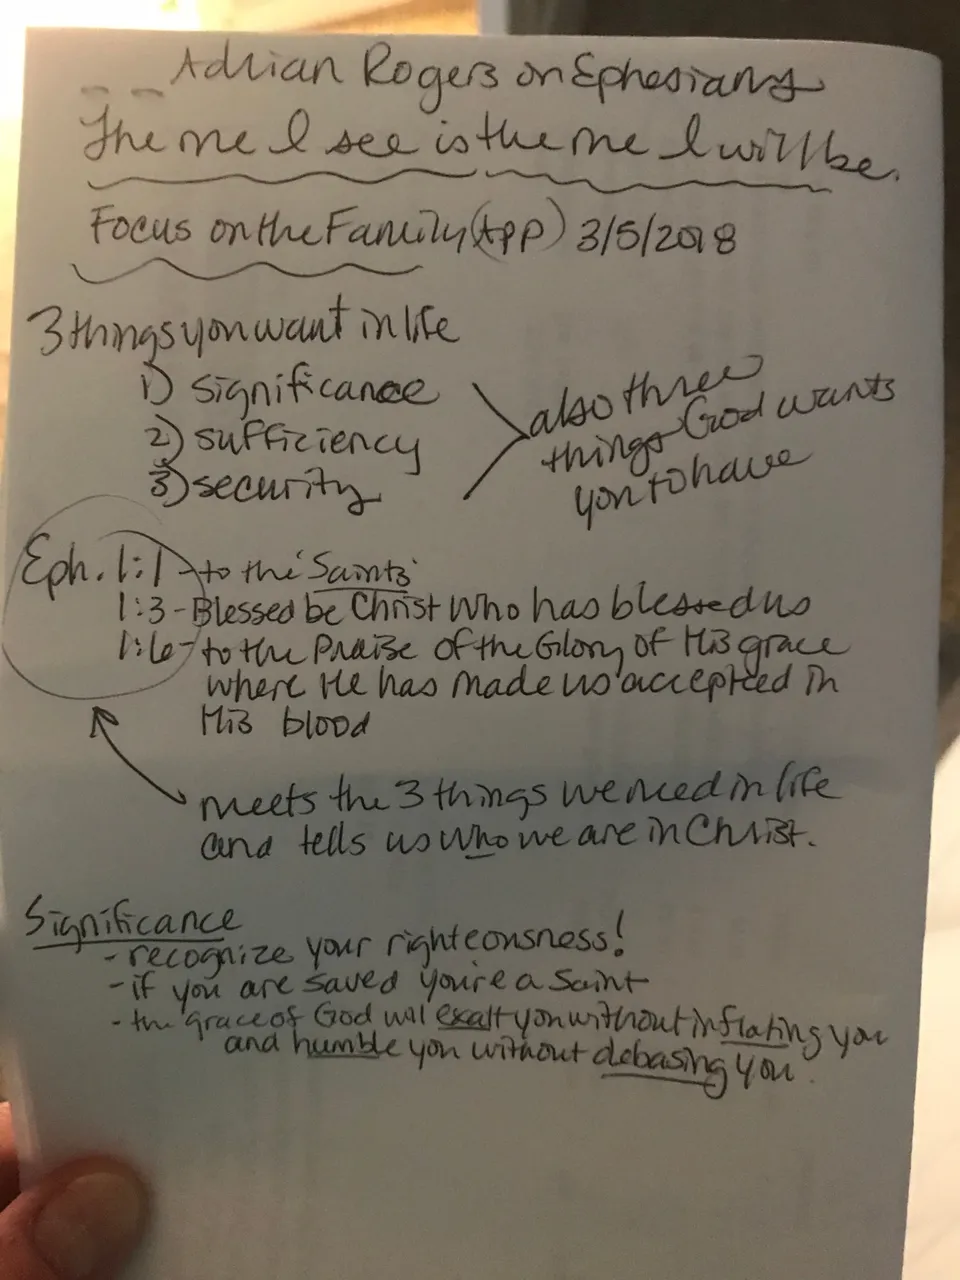 Adrian Rogers on Ephesians
The me I see is the me I will be.
Focus on the Family (App) 3/5/2018
3 things you want in life
1) significance
2) sufficiency
3) security
also three
things God wants
you to have
Eph. 1:1 - to the 'Saints'
1:3 - Blessed be Christ who has blessed us
1:6 - to the Praise of the Glory of His grace
where He has made us accepted in
His blood
meets the 3 things we need in life
and tells us who we are in Christ.
Significance
- recognize your righteousness!
- if you are saved you're a Saint
- the grace of God will exalt you without inflating you
and humble you without debasing you.